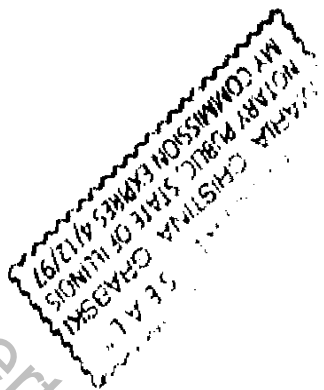 SEAL"
MARIA CHISTINA GRABSKI
NOTARY PUBLIC, STATE OF ILLINOIS
MY COMMISSION EXPIRES 4/12/97
ert